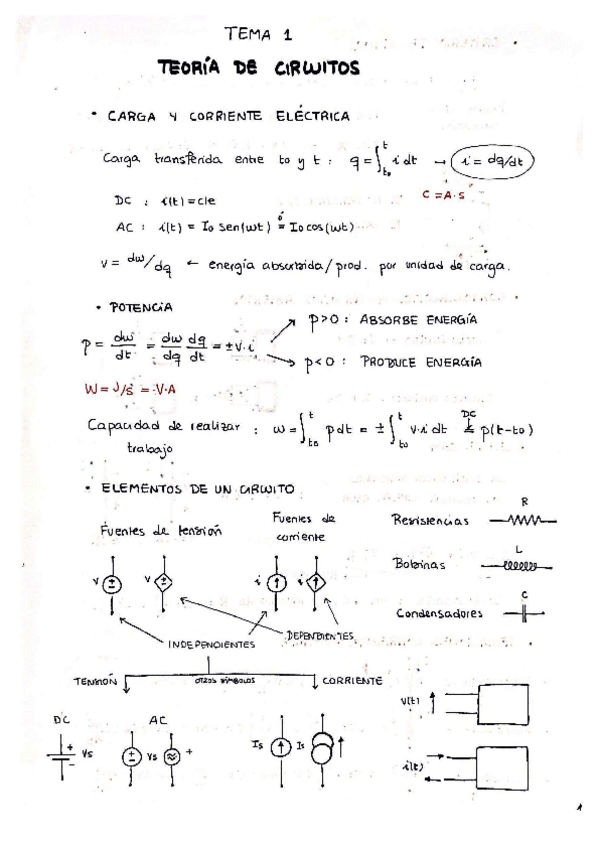 TEMA 1
TEORÍA DE CIRCUITOS
• CARGA Y CORRIENTE ELÉCTRICA
Carga transferida entre to y t : q = ∫ₜₒᵗ i dt → i = dq/dt
C = A·s
DC : i(t) = cte
AC : i(t) = Io sen(wt) ó = Io cos(wt)
v = dw/dq ← energía absorbida/prod. por unidad de carga.
• POTENCIA
p = dw/dt = dw/dq dq/dt = ±v·i
p>0 : ABSORBE ENERGÍA
p<0 : PRODUCE ENERGÍA
W = J/s = V·A
Capacidad de realizar trabajo : w = ∫ₜₒᵗ p dt = ± ∫ₜₒᵗ v·i dt DC = p(t-to)
• ELEMENTOS DE UN CIRCUITO
Fuentes de tensión
Fuentes de corriente
Resistencias R
Bobinas L
Condensadores C
v ± v ± i i
INDEPENDIENTES
DEPENDIENTES
TENSIÓN
OTROS SÍMBOLOS
CORRIENTE
DC
AC
+ Vs -
± Vs ≈ +
Is Is
v(t)
i(t)
1